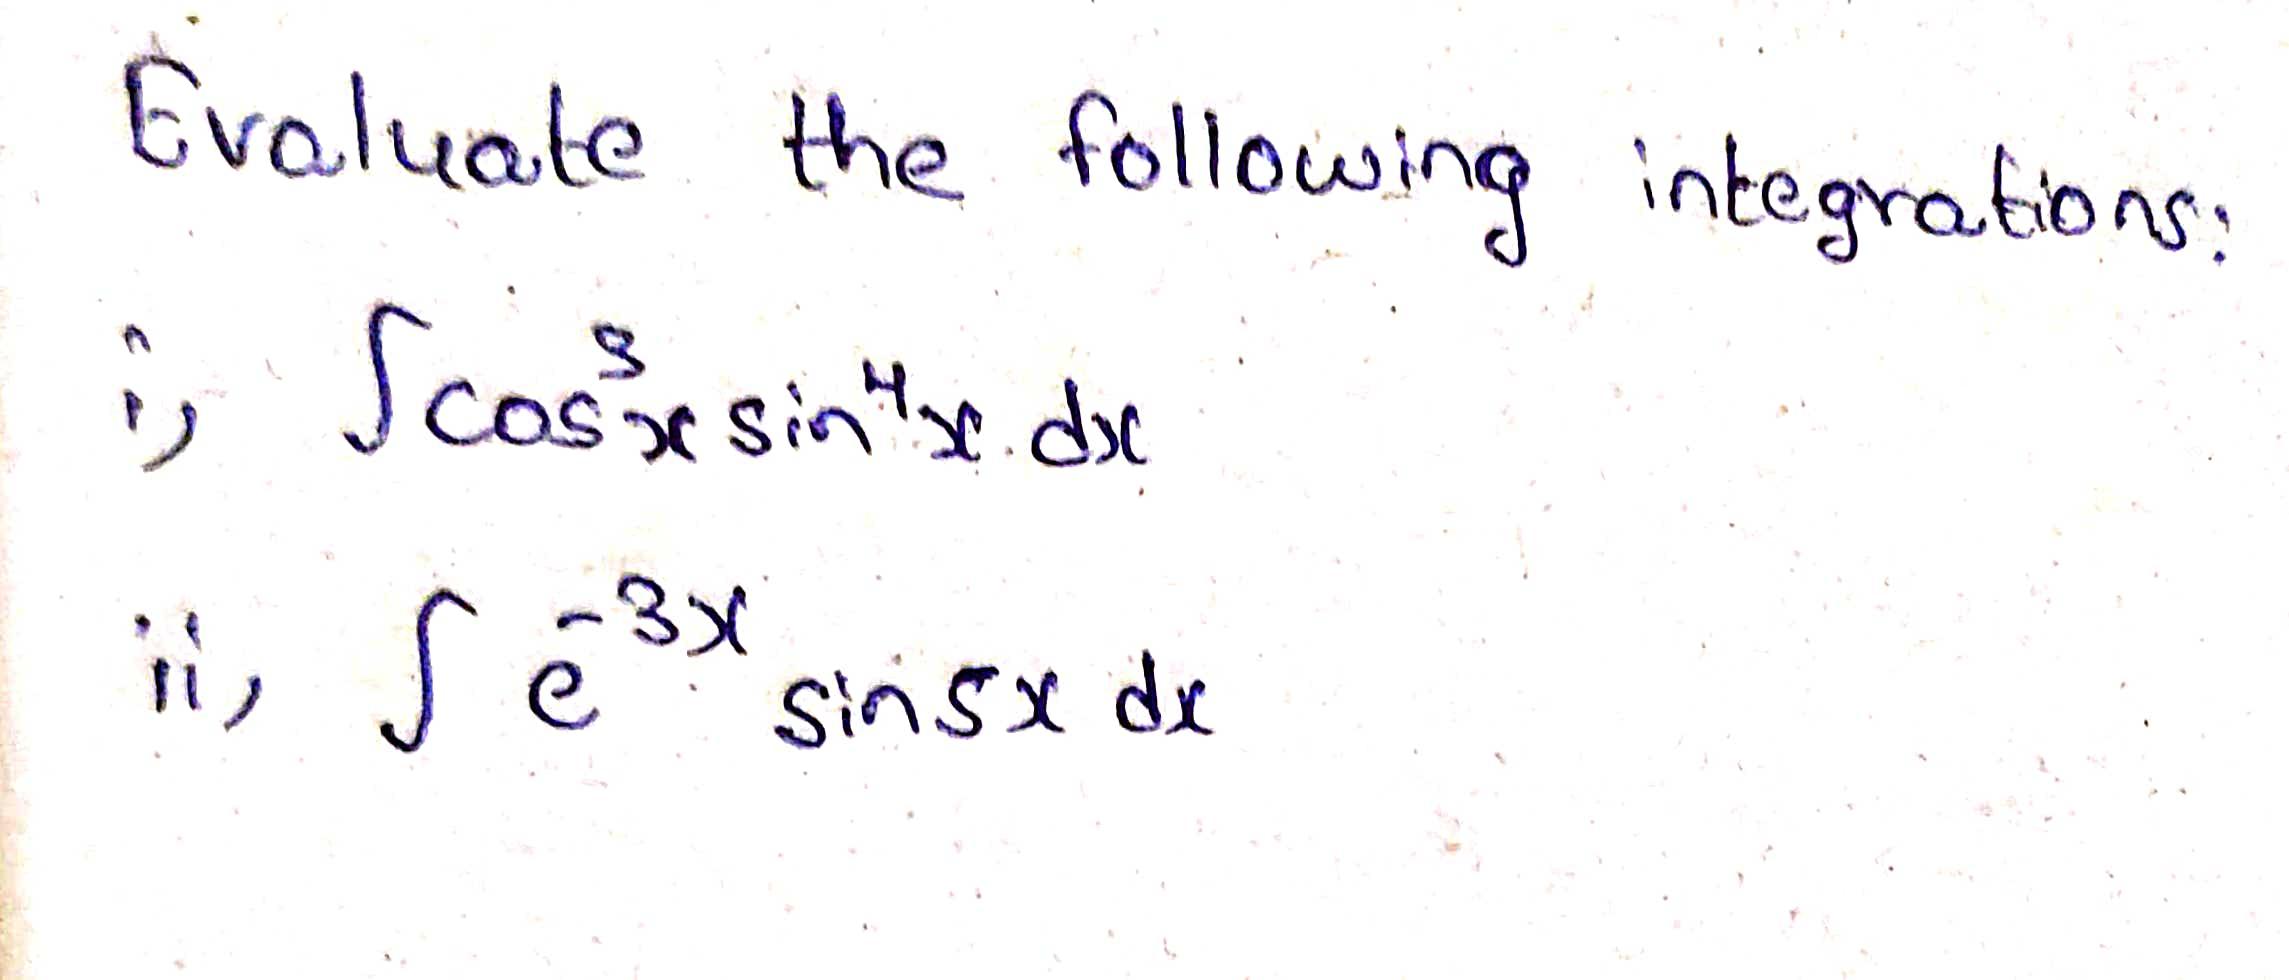 Evaluate the following integrations:
i, ∫cos³x sin⁴x. dx
ii, ∫ e⁻³ˣ sin5x dx